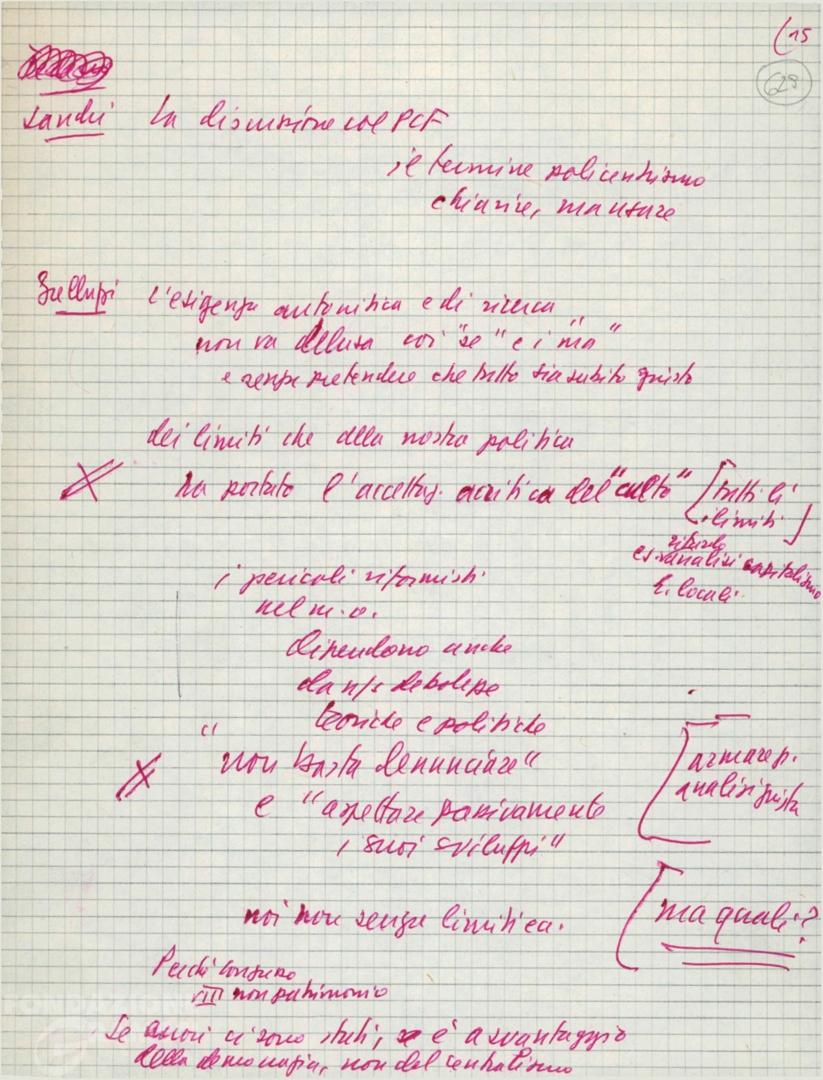 (15
629
Sandri La discussione col PCF
il termine policentrismo
chiarire,
Gruppi l'esigenza autocritica e di ricerca
non va delusa coi "se" e i "ma"
e senza pretendere che tutto sia subito giusto
dei limiti che della nostra politica
ha portato l'accettaz. acritica del "culto" [tutti li
limiti]
es. analisi capitalismo
i pericoli riformisti
nel m.o.
dipendono anche
da n/s debolezze
teoriche e politiche
"non basta denunciare"
e "aspettare passivamente
i suoi sviluppi"
[armare p.
analisi giusta
noi non senza limiti ca.
[ma quali?
Perché
VIII non patrimonio
Se errori ci sono stati, è a svantaggio
della democrazia, non del centralismo